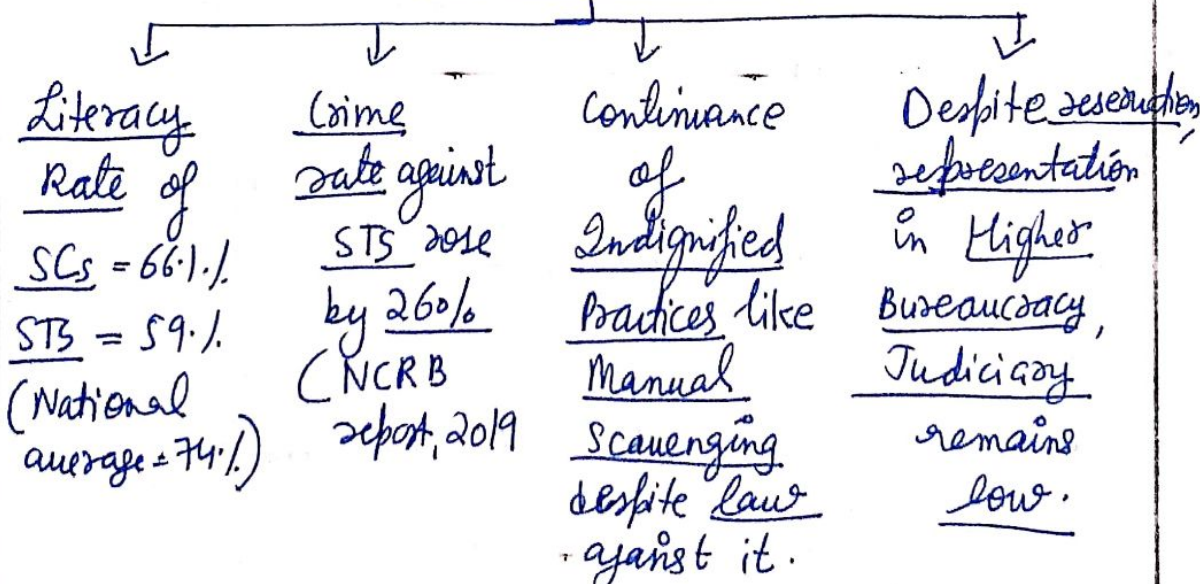 Literacy
Rate of
SCs = 66.1%
STs = 59%
(National
average = 74%)
Crime
rate against
STs rose
by 26%
(NCRB
report, 2019
Continuance
of
Indignified
Practices like
Manual
Scavenging
despite law
against it.
Despite reservation,
representation
in Higher
Bureaucracy,
Judiciary
remains
low.